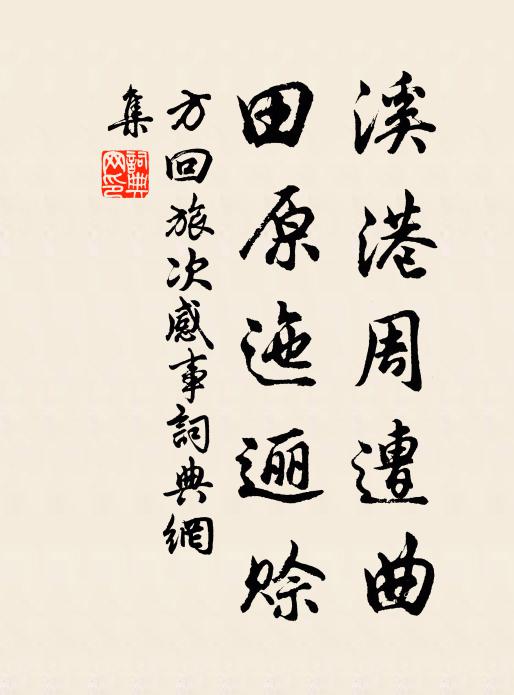 溪港周遭曲
田原迤逦赊
方回旅次感事詞典網
集
詞典
网印